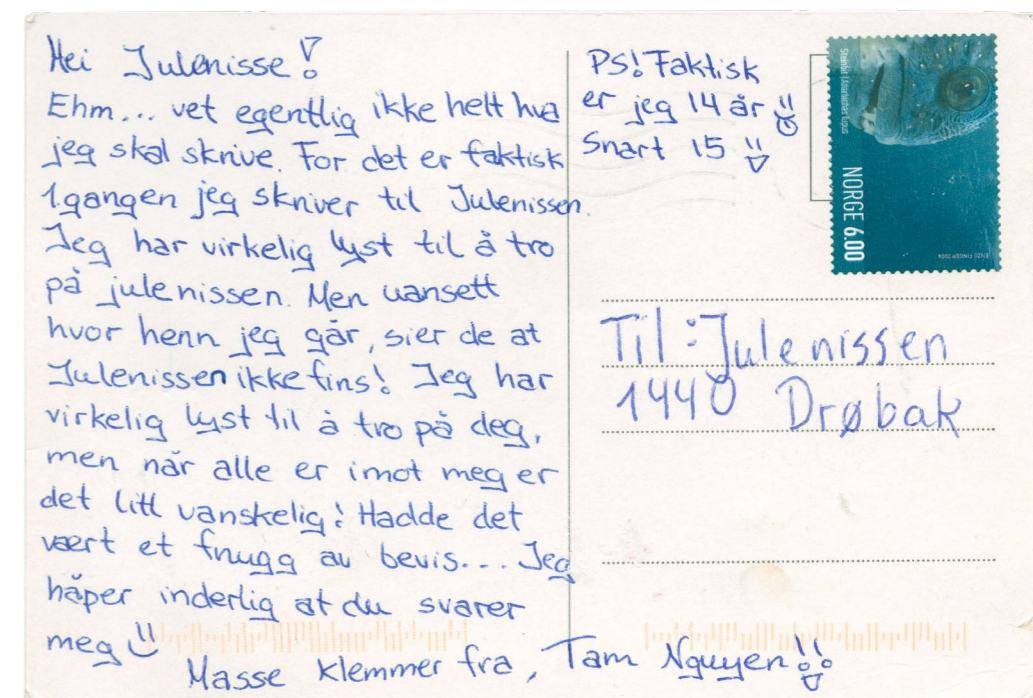 Hei Julenisse!
Ehm... vet egentlig ikke helt hva
jeg skal skrive. For det er faktisk
1.gangen jeg skriver til Julenissen.
Jeg har virkelig lyst til å tro
på julenissen. Men uansett
hvor henn jeg går, sier de at
Julenissen ikke fins! Jeg har
virkelig lyst til å tro på deg,
men når alle er imot meg er
det litt vanskelig! Hadde det
vært et fnugg av bevis... Jeg
håper inderlig at du svarer
meg
Masse klemmer fra, Tam Nguyen!
PS! Faktisk
er jeg 14 år
Snart 15
NORGE 6.00
Til: Julenissen
1440 Drøbak